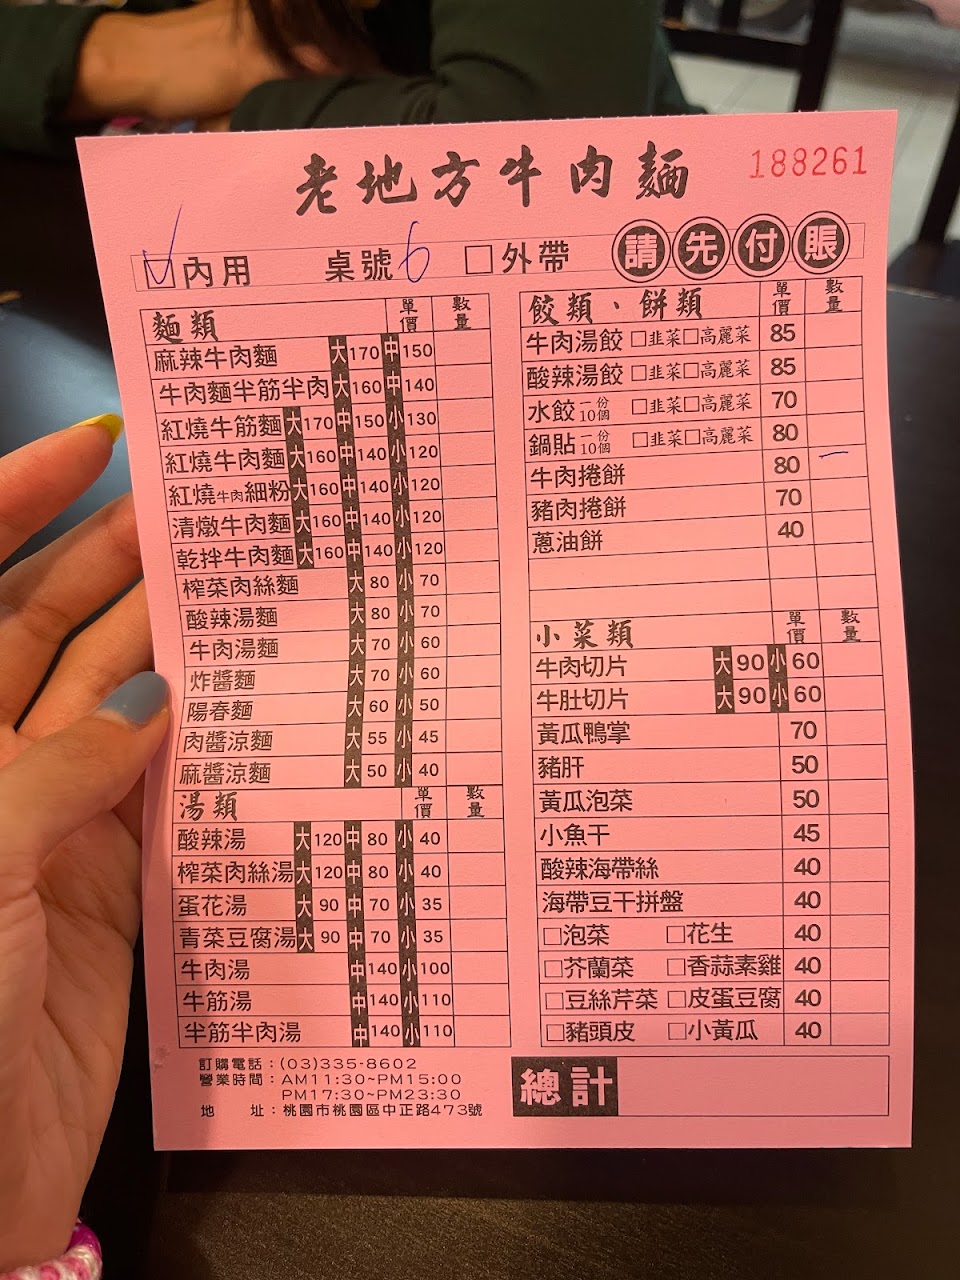 老地方牛肉麵
188261
☑內用 桌號 6 □外帶 請先付賬
麵類 單價 數量
麻辣牛肉麵 大170 中150
牛肉麵半筋半肉 大160 中140
紅燒牛筋麵 大170 中150 小130
紅燒牛肉麵 大160 中140 小120
紅燒牛肉細粉 大160 中140 小120
清燉牛肉麵 大160 中140 小120
乾拌牛肉麵 大160 中140 小120
榨菜肉絲麵 大80 小70
酸辣湯麵 大80 小70
牛肉湯麵 大70 小60
炸醬麵 大70 小60
陽春麵 大60 小50
肉醬涼麵 大55 小45
麻醬涼麵 大50 小40
湯類 單價 數量
酸辣湯 大120 中80 小40
榨菜肉絲湯 大120 中80 小40
蛋花湯 大90 中70 小35
青菜豆腐湯 大90 中70 小35
牛肉湯 中140 小100
牛筋湯 中140 小110
半筋半肉湯 中140 小110
餃類、餅類 單價 數量
牛肉湯餃 □韭菜□高麗菜 85
酸辣湯餃 □韭菜□高麗菜 85
水餃 一份10個 □韭菜□高麗菜 70
鍋貼 一份10個 □韭菜□高麗菜 80
牛肉捲餅 80 一
豬肉捲餅 70
蔥油餅 40
小菜類 單價 數量
牛肉切片 大90 小60
牛肚切片 大90 小60
黃瓜鴨掌 70
豬肝 50
黃瓜泡菜 50
小魚干 45
酸辣海帶絲 40
海帶豆干拼盤 40
□泡菜 □花生 40
□芥蘭菜 □香蒜素雞 40
□豆絲芹菜 □皮蛋豆腐 40
□豬頭皮 □小黃瓜 40
訂購電話：(03)335-8602
營業時間：AM11:30~PM15:00
PM17:30~PM23:30
地 址：桃園市桃園區中正路473號
總計